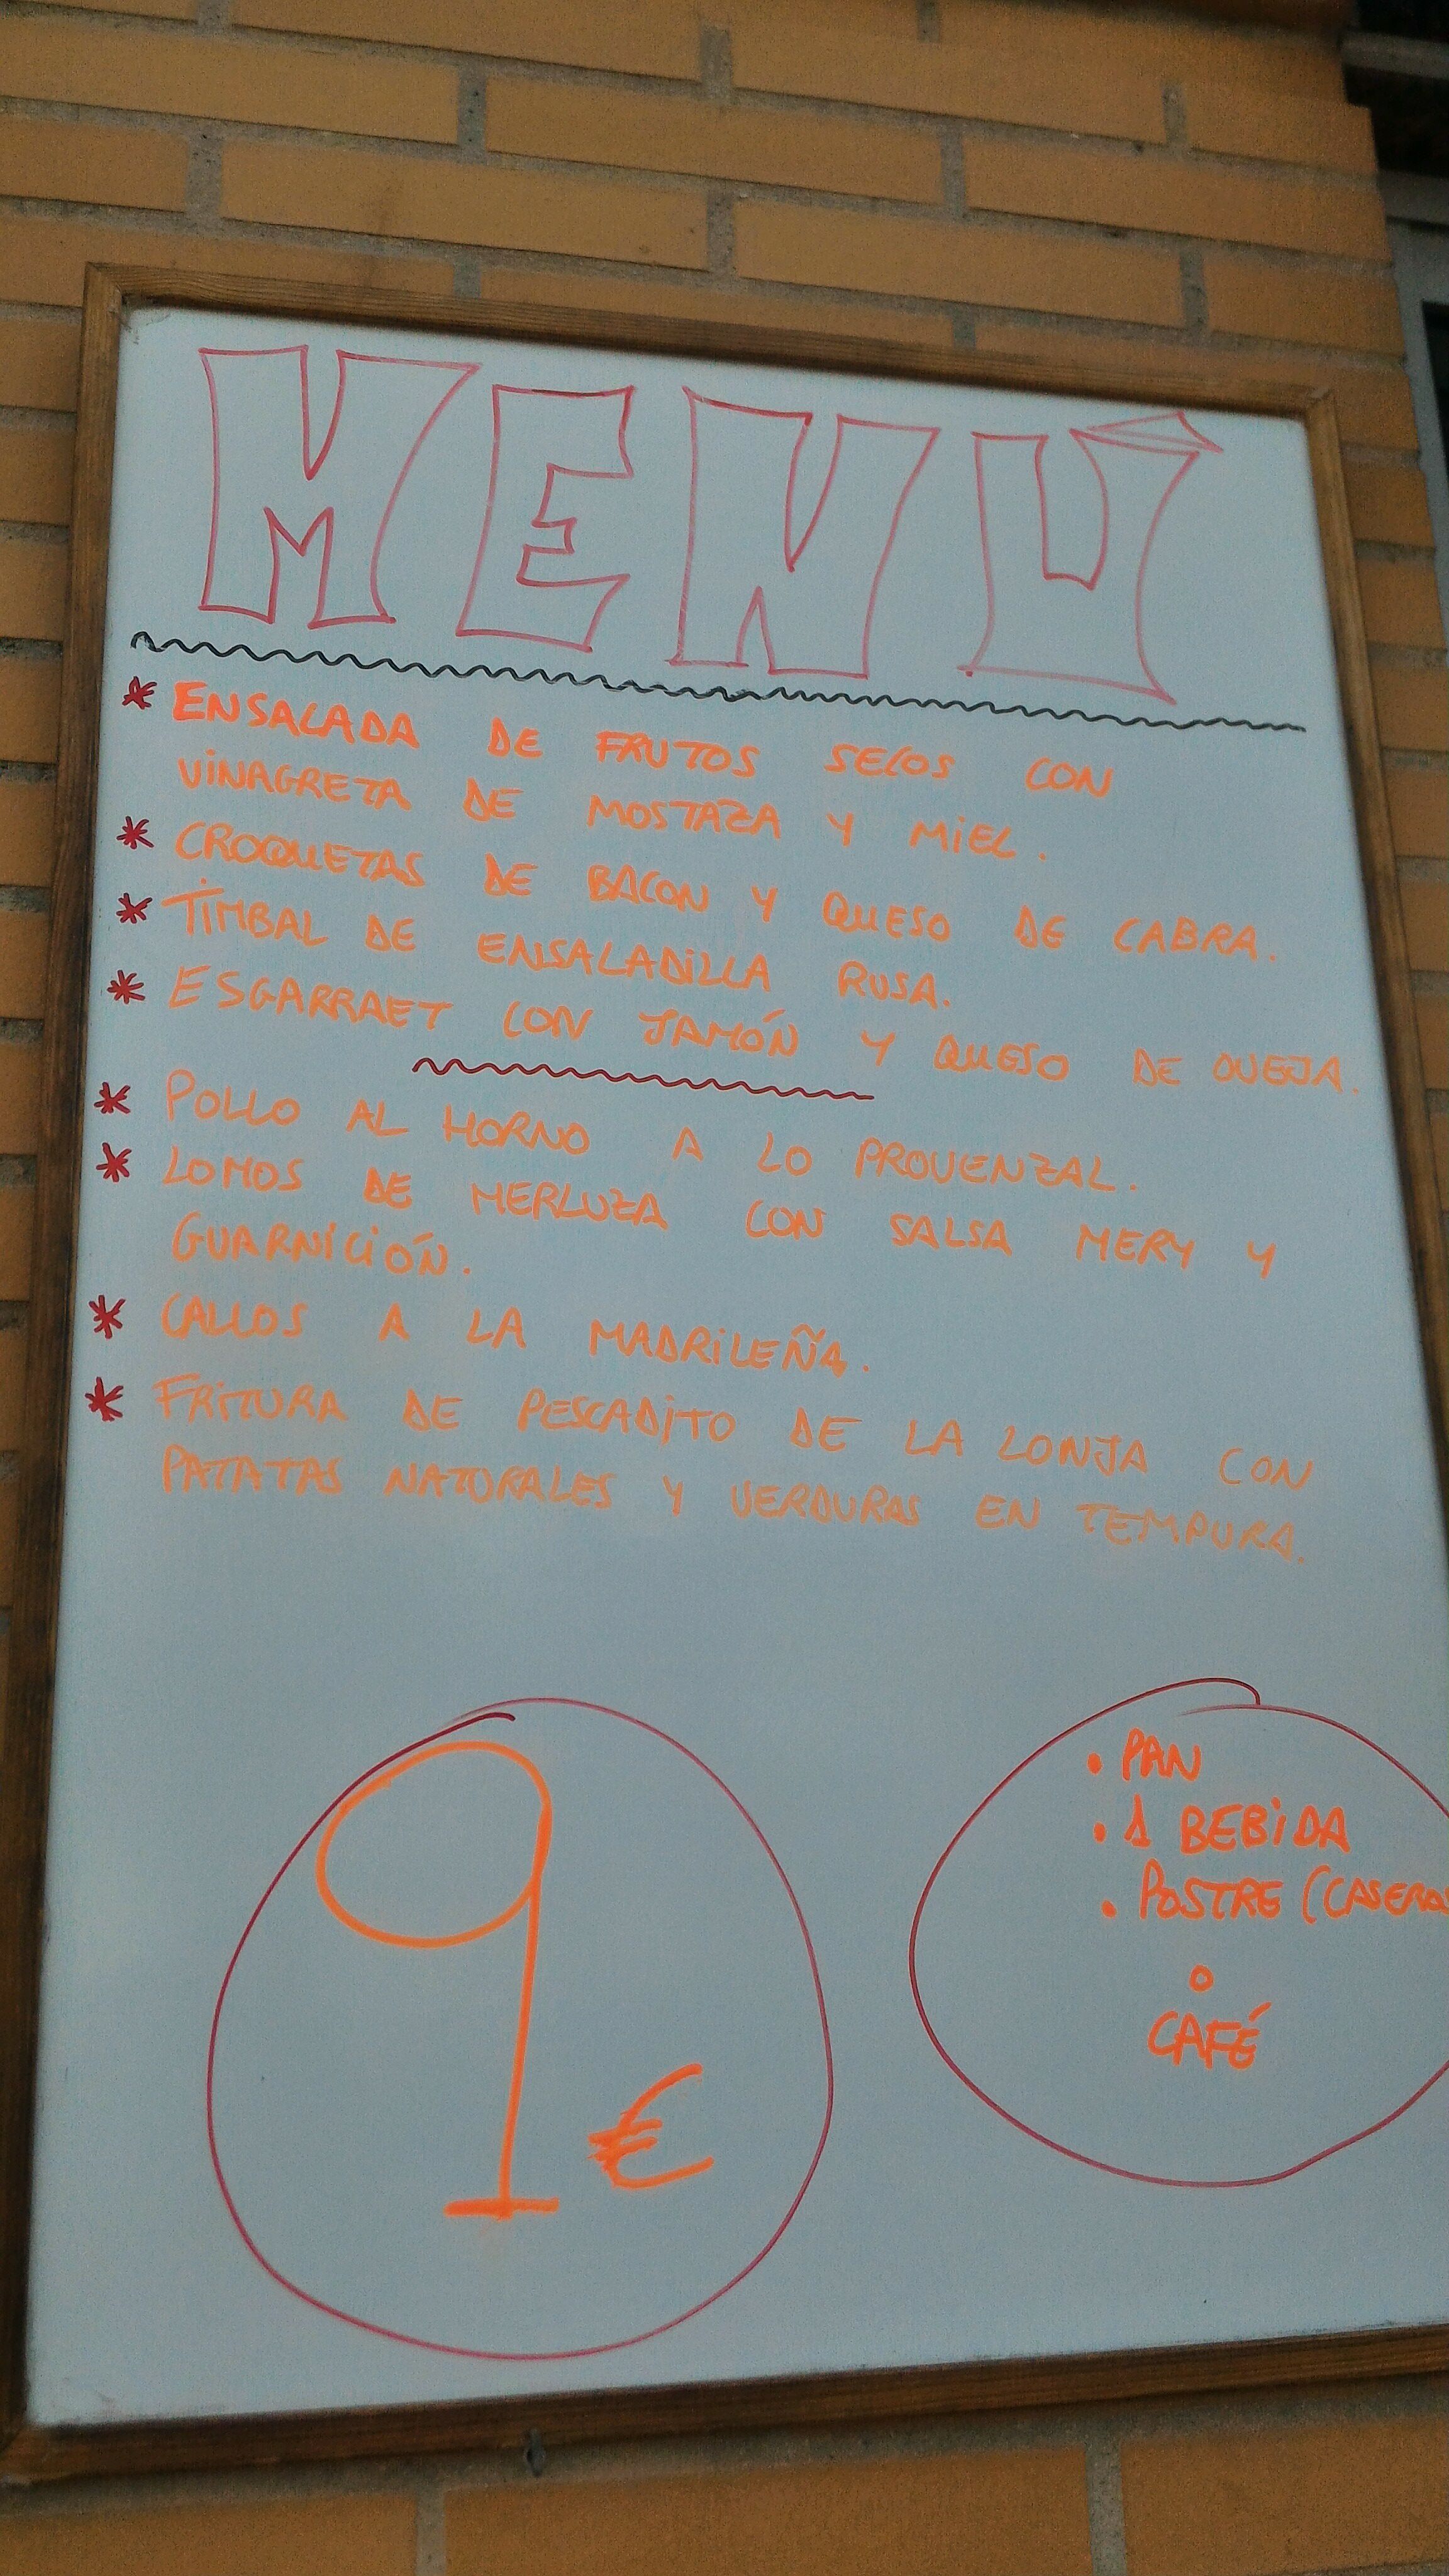 MENÚ
* ENSALADA DE FRUTOS SECOS CON
VINAGRETA DE MOSTAZA Y MIEL.
* CROQUETAS DE BACON Y QUESO DE CABRA.
* TIMBAL DE ENSALADILLA RUSA.
* ESGARRAET CON JAMÓN Y QUESO DE OVEJA.
* POLLO AL HORNO A LO PROVENZAL.
* LOMOS DE MERLUZA CON SALSA MERY Y
GUARNICIÓN.
* CALLOS A LA MADRILEÑA.
* FRITURA DE PESCADITO DE LA LONJA CON
PATATAS NATURALES Y VERDURAS EN TEMPURA.
9 €
• PAN
• 1 BEBIDA
• POSTRE (CASEROS
O
CAFÉ